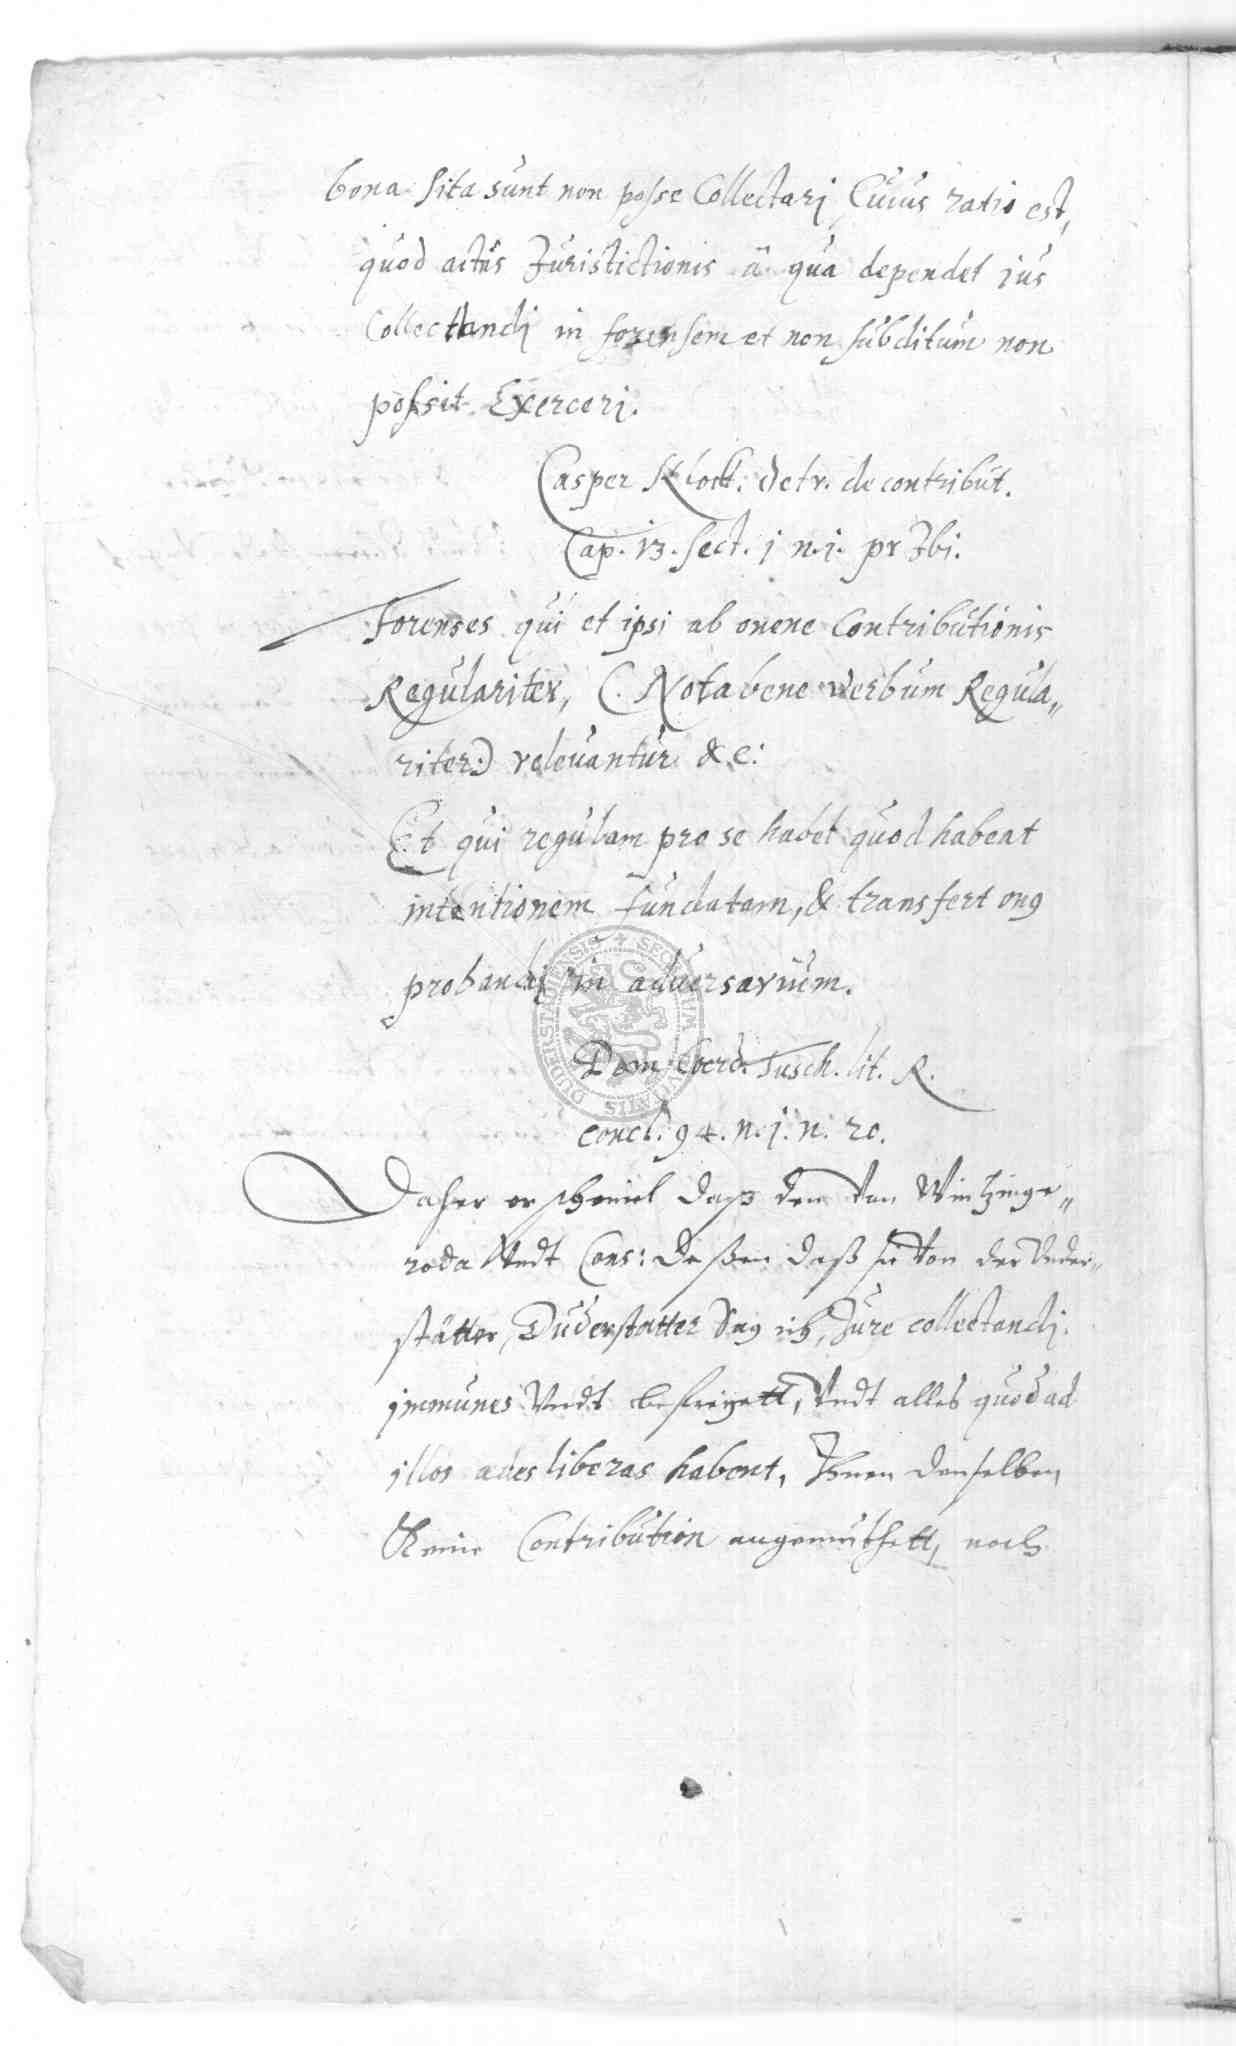 bona sita sunt non posse Collectari, Cuius ratio est,
quod actus Juristictionis â qua dependet jus
Collectandi in forensem et non subditum non
possit Exerceri.
Casper Klock. detr. de contribut.
Cap. 13. sect. j n. j. pr Jbi.
Forenses qui et ipsi ab onene Contributionis
Regulariter, (. Nota bene verbum Regula„
riter:) relevantur &c:
Et qui regulam pro se habet quod habeat
intentionem fundatam, & transfert on9
probandj in adversarium.
Dom. Tusch. lit. R.
concl. 94. n. j. n. 20.
Daher erscheinet daß den von Wintzinge„
roda Vndt Cons: deßen daß sie von der
stätter, Duderstatter Sag ich, Jure collectandj
jmmunes Vndt befreyett, Vndt alles quod ad
jllos aedes liberas habent, Ihnen denselben
Keine Contribution angemuthett, noch
DUDERSTADIENSIS SECRETUM CIVITATIS